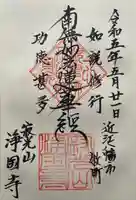 令和五年五月廿一日
近江八幡市
如説修行
南無妙法蓮華経
功徳甚多
浄国寺